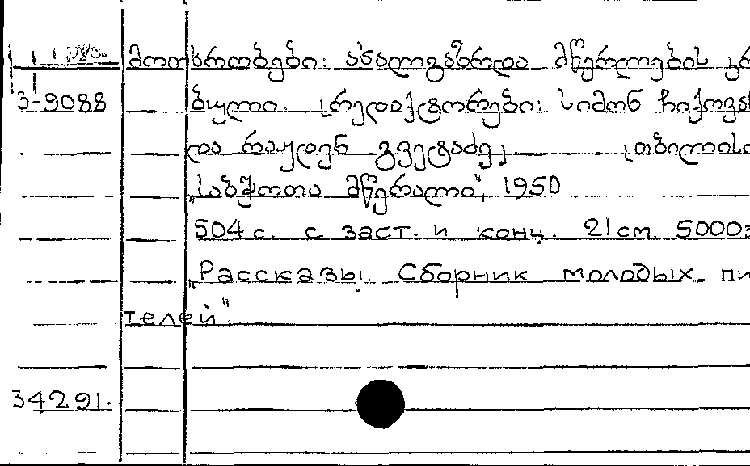 მოთხრობები. ახალგაზრდა მწერლების კრ
3-9088 ბული. [რედაქტორები: სიმონ ჩიქოვა
და რაჟდენ გვეტაძე] თბილისი
„საბჭოთა მწერალი“, 1950
504 с. с заст. и конц. 21 см. 5000э
„Рассказы. Сборник молодых пи
телей“
34291.